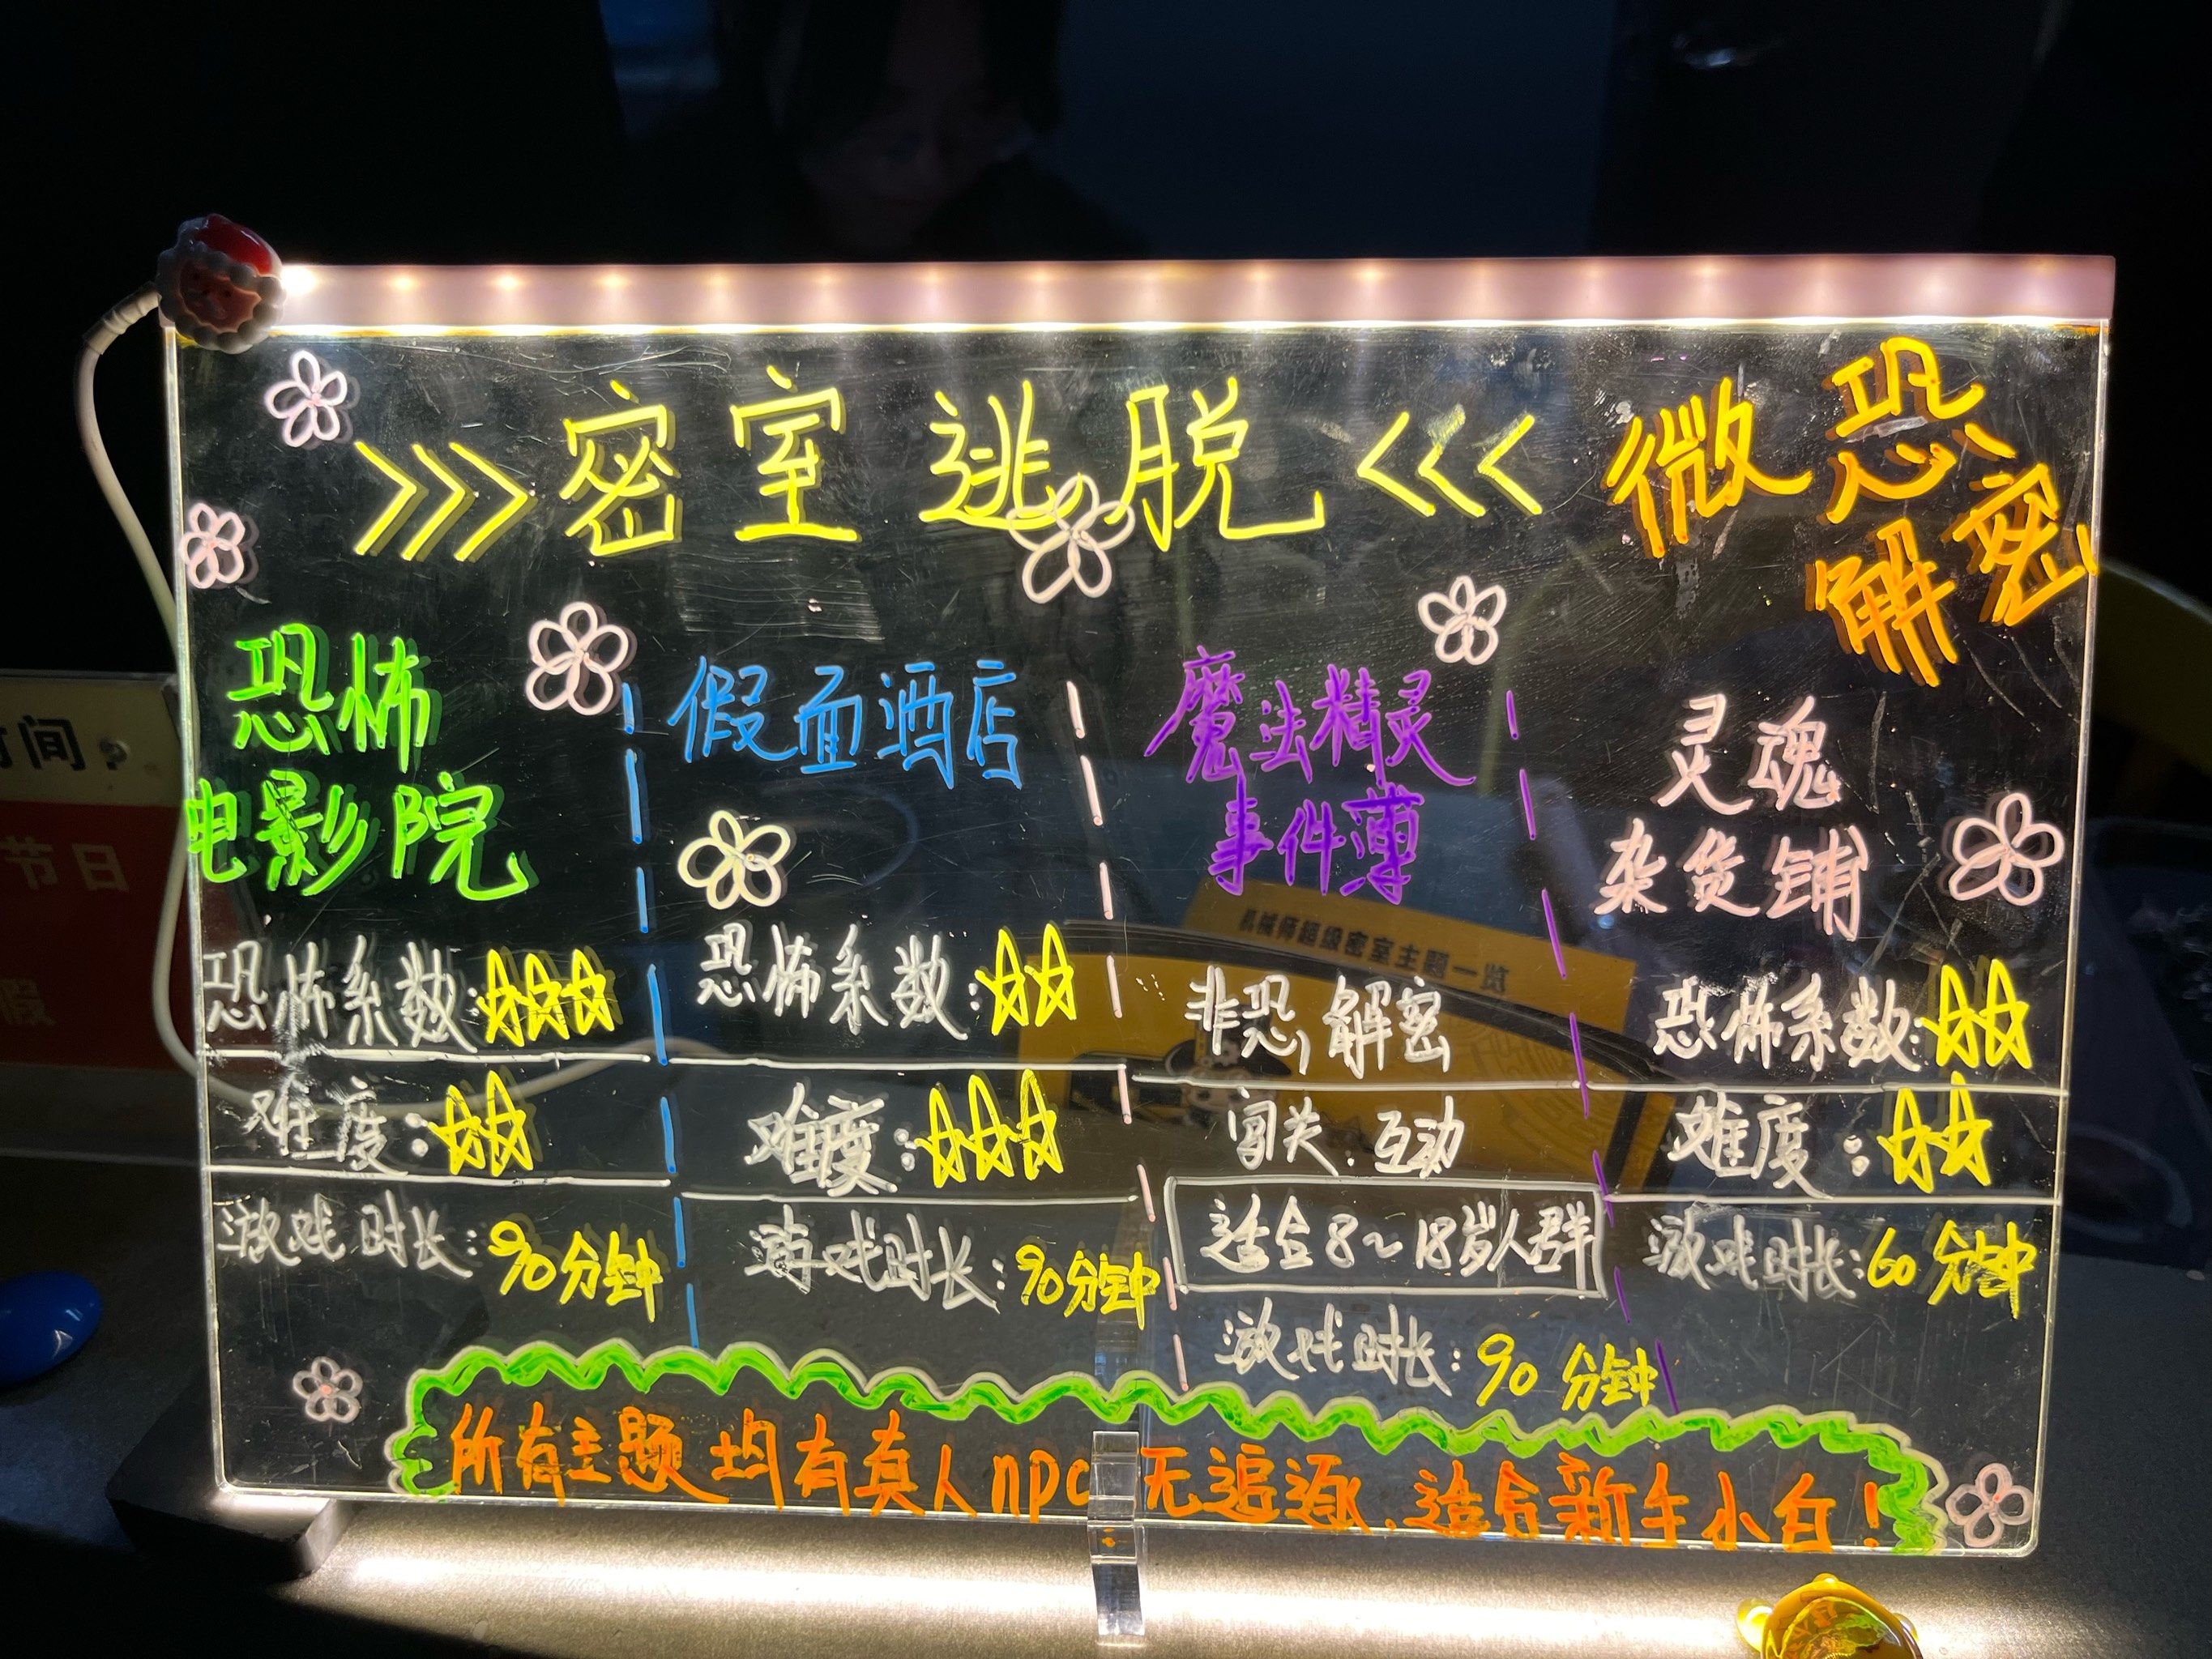 >>>密室逃脱<<<
微恐
解密
恐怖
电影院
恐怖系数:☆☆☆
难度:☆☆
游戏时长:90分钟
假面酒店
恐怖系数:☆☆
难度:☆☆☆
游戏时长:90分钟
魔法精灵
事件薄
非恐解密
闯关.互动
适合8~18岁人群
游戏时长:90分钟
灵魂
杂货铺
恐怖系数:☆☆
难度:☆☆
游戏时长:60分钟
所有主题均有真人npc 无追逐.适合新手小白!
机械师超级密室主题一览
时间?
节日
假